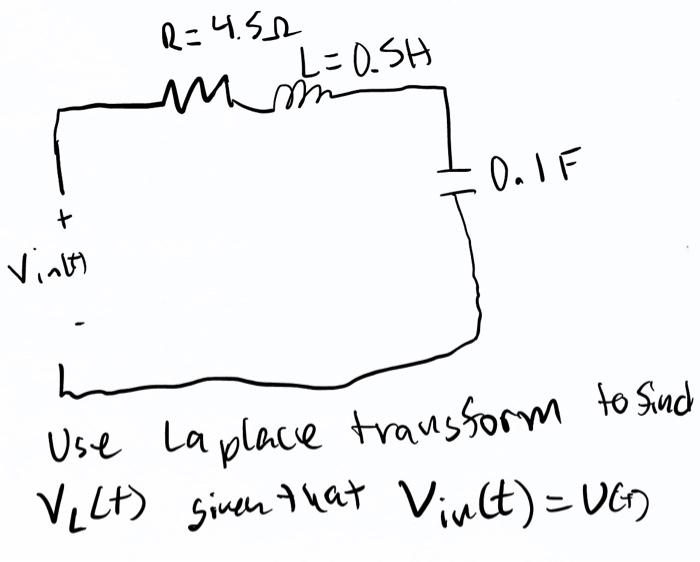 R=4.5Ω
L=0.5H
0.1F
+
Vin(t)
-
Use Laplace transform to find
VL(t) given that Vin(t)=U(t)